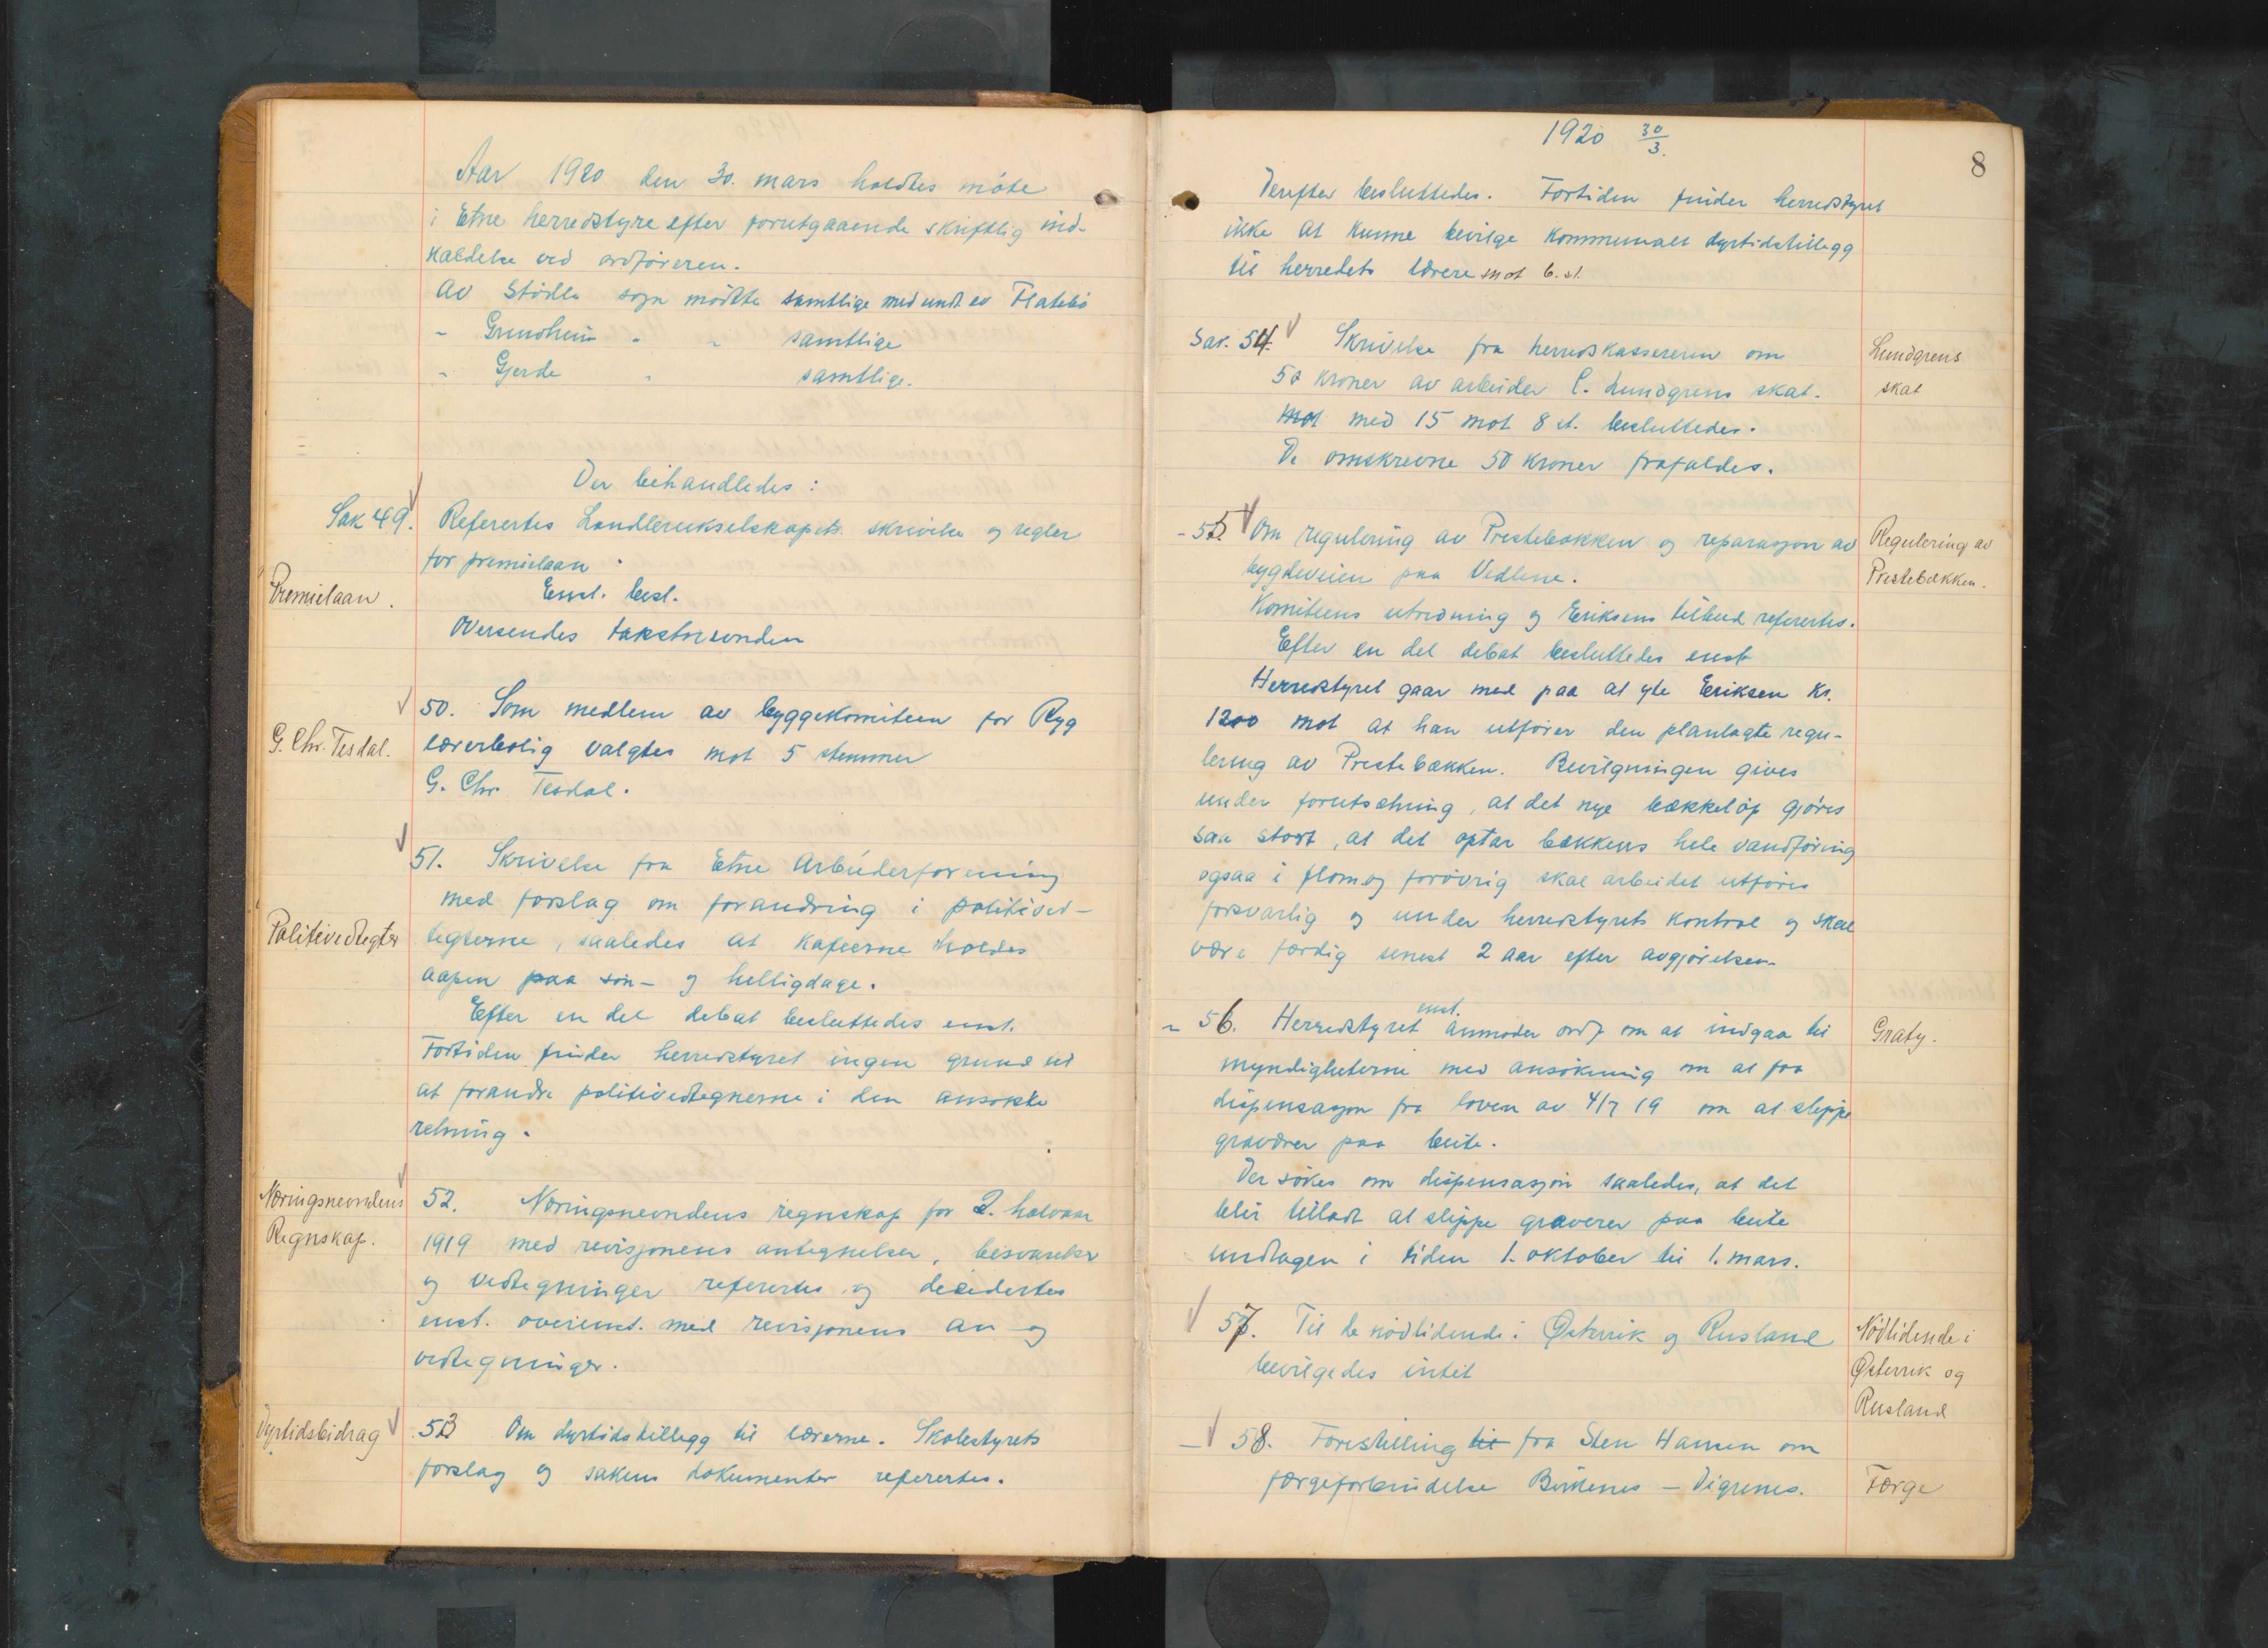 Aar 1920 den 30. mars holdtes møte
i Etne herredstyre efter forutgaaende skriftlig ind-
kaldelse ved ordføreren.
Av Stødle sogn møtte samtlige med undt. av Flatebø
" Grindheim " " samtlige
" Gjerde " samtlige.
Der behandledes:
Sak 49. Referertes Landbrukselskapets skrivelse og regler
for premielaan.
Premielaan.
Enst. besl.
Oversendes takstnevnden
50. Som medlem av byggekomiteen for Ryg
G. Chr. Tesdal.
lærerbolig valgtes mot 5 stemmer
G. Chr. Tesdal.
51. Skrivelse fra Etne Arbeiderforening
med forslag om forandring i politived-
Politivedtegter
tegterne, saaledes at kafeerne holdes
aapen paa søn- og helligdage.
Efter en del debat besluttedes enst.
Fortiden finder herredstyret ingen grund til
at forandre politivedtegterne i den ansøkte
retning.
Næringsnevndens
Regnskap.
52. Næringsnevndens regnskap for 2. halvaar
1919 med revisjonens antegnelser, besvarelser
og vedtegninger refertes og decidertes
enst. overenst. med revisjonens an- og
vedtegninger.
Dyrtidsbidrag
53 Om dyrtidstillegg til lærerne. Skolestyrets
forslag og sakens dokumenter refertes.
1920 30/3.
8
Derefter besluttedes. Fortiden finder herredstyret
ikke at kunne bevilge kommunalt dyrtidstillegg
til herredets lærere mot 6 st.
Sak. 54. Skrivelse fra herredskassereren om
Lundgrens
skat
50 kroner av arbeider C. Lundgrens skat.
mot med 15 mot 8 st. besluttedes.
De omskrevne 50 kroner frafaldes.
- 55 Om regulering av Prestebækken og reparasjon av
Regulering av
Prestebækken.
bygdeveien paa Vedlene.
Komiteens utredning og Eriksens tilbud refertes.
Efter en del debat besluttedes enst
Herredstyret gaar med paa at yte Eriksen Kr.
1200 mot at han utfører den planlagte regu-
lering av Prestebækken. Bevilgningen gives
under forutsætning, at det nye bækkeløp gjøres
saa stort, at det optar bækkens hele vandføring
ogsaa i flom og forøvrig skal arbeidet utføres
forsvarlig og under herredstyrets kontrol og skal
være færdig senest 2 aar efter avgjørelsen.
- 56. Herredstyret enst. anmoder ordf om at indgaa til
Graty.
myndigheterne med ansøkning om at faa
dispensasjon fra loven av 4/7 19 om at slippe
graværer paa beite.
Der søkes om dispensasjon saaledes, at det
blir tilladt at slippe graverer paa beite
undtagen i tiden 1. oktober til 1. mars.
57. Til de nødlidende i Østerrik og Rusland
Nødlidende i
Østerrik og
Rusland
bevilgedes intet
- 58. Forestilling til fra Sten Hansen om
færgeforbindelse Birkenes - Vigrenes.
Færge